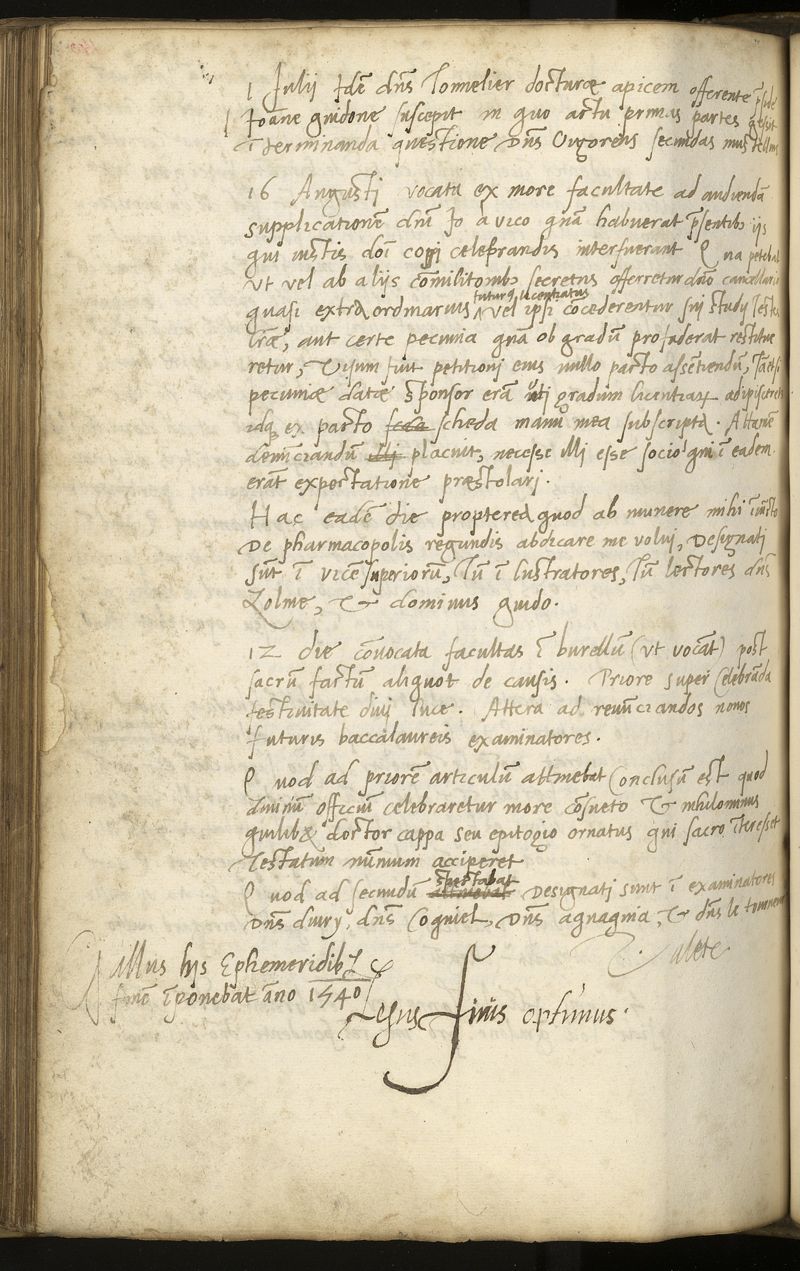 1 Julij Idē dn̄s Tonnelier docturæ apicem offerente p̄side
Joāne guidone suscepit in quo actu primas partes gessit
Terminanda questione Dn̄s Ourgorens secundas
16 Augusti vocata ex more facultate ad audiendā
supplicationē dnī Jo a vico quā habuerat p̄sentib9 iis
qui iustis doī celebrandis interfuerant Qua petebat
vt vel ab aliis cōmilitonib9 secretus offerretur dn̄o cancellario
quasi extraordinarius futurus licentiatus vel ipsi cōcederentur sui studij Testes
lr̄æ, aut certe pecunia quā ob gradū profuderat restitue
retur, Visum fuit petitioni eius nullo pacto assētiendū, Tāetsi
pecuniæ datæ spōnsor erā uti gradum licentiaꝝ adipisceretur
idq ex pacto scheda manu mea subscripta. Attamē
denūciandū illi placuit, necesse illi esse socios qui ī eadem
erāt expectatione præstolari.
Hac eadē die propterea quod ab munere mihi iūcto
De pharmacopolis regundis abdicare me volui, Designati
sūt ī vicē superiorū, Tū ī lustratores, Tū lectores dn̄s
Lolme, & dominus guido.
12 die cōvocata facultas ī burellū (vt vocāt) post
sacrū factū aliquot de causis. Priore super Celebrāda
festivitate divi luce. Altera ad renūciandos novos
futuris baccalaureis examinatores.
Quod ad priorē articulū attinebat Conclusū est quod
divinū officiū celebraretur more cōsueto & nihilominus
quilib& doctor cappa seu epitogio ornatus qui sacro īteresset
Testatum nūmum acciperet
Quod ad secundū spectabat attinebat Designati sunt ī examinatores
Dn̄s divry, dn̄s Cogniel, Dn̄s agnagnia, & dn̄s le tonnelier
Valete
Gallus hijs Ephemeridib9
finē īponebat āno 1540
Iesus Finis optimus.